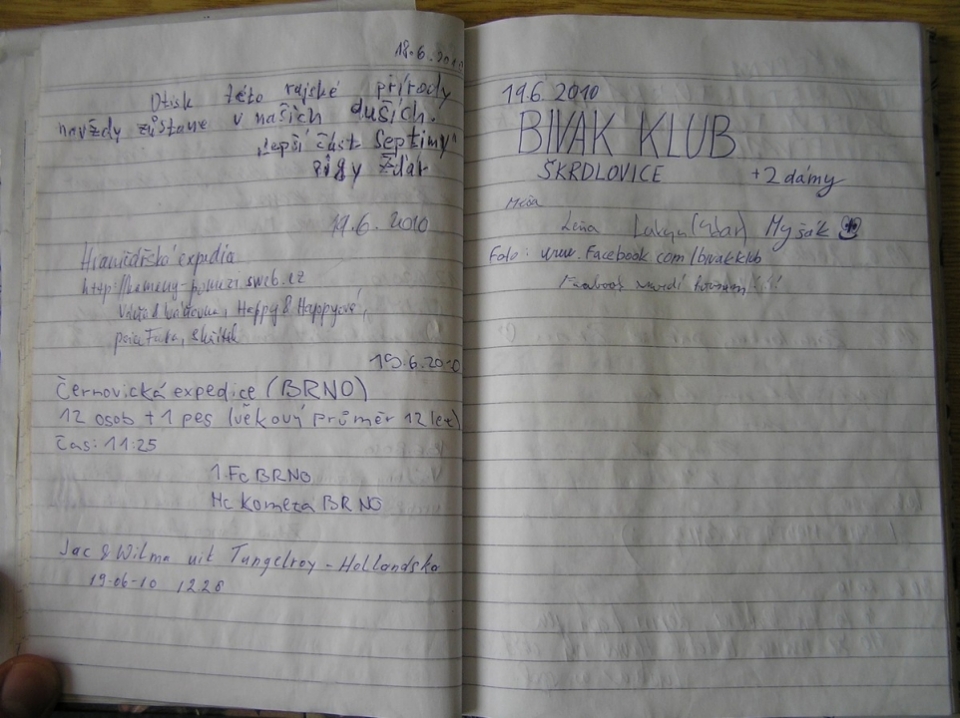 18.6.2010
Otisk této rajské přírody
navždy zůstane v našich duších.
"lepší část Septimy"
gigy Žďár
19.6.2010
Hraničářská expedia
http://kameny-pomezi.sweb.cz
Happy & Happyová,
19.6.2010
Černovická expedice (BRNO)
12 osob + 1 pes (věkový průměr 12 let)
čas: 11:25
1.Fc BRNO
Hc Kometa BRNO
Jac & Wilma uit Tungelroy - Hollandsko
19-06-10 1220
19.6. 2010
BIVAK KLUB
ŠKRDLOVICE +2 dámy
Myšák
Foto: www.Facebook.com/bivakklub